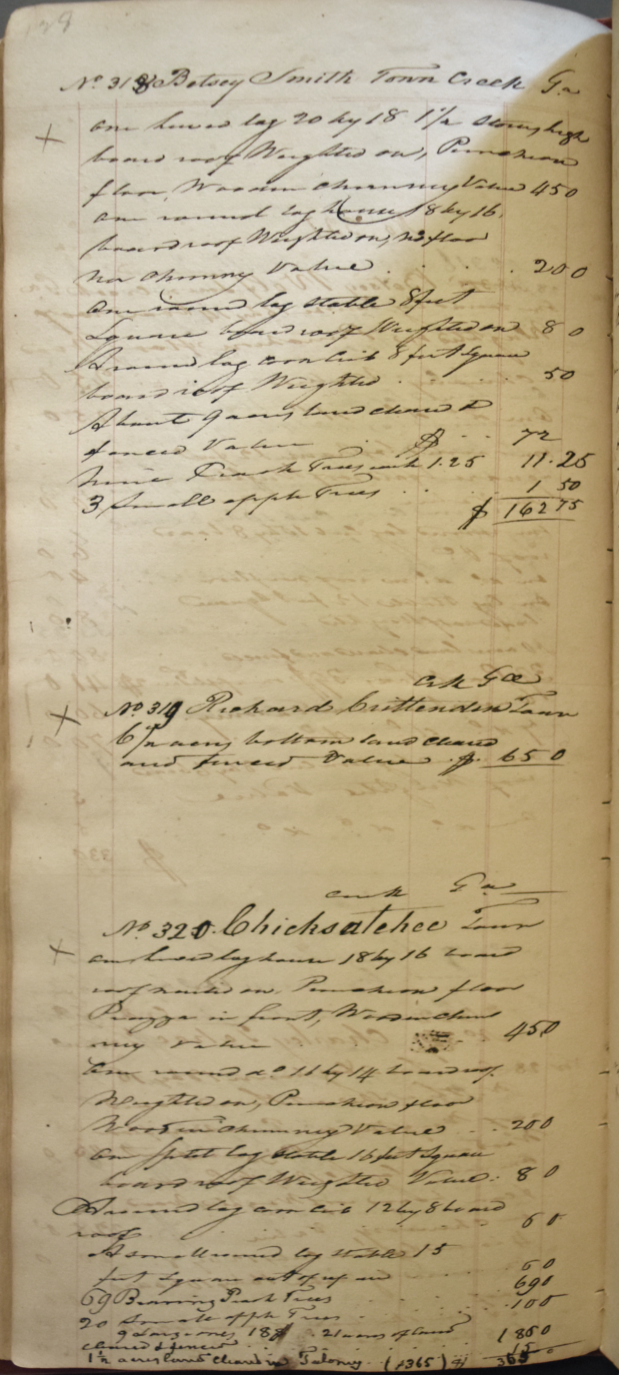 128
No 318 Betsey Smith Town Creek Ga
One hewed log 20 by 18 1 1/2 storey high
board roof Weighted on, Puncheon
floor, Wooden Chimney Value 450
One round log house 18 by 16
board roof Weighted on, no floor
no Chimney Value 200
One round log stable 8 feet
Square board roof Weighted on 80
A round log corn Crib 8 feet Square
board roof Weighted 50
About 9 acres land cleared &
fenced Value $ 72
nine Peach Trees with 1.25 11.25
3 Small apple Trees 1 50
$ 162 75
Crk Ga
No 319 Richard Crittenden Town
6 1/2 acres bottom land cleared
and fenced Value $ 65 0
Creek Ga
No 320 Chicksatehee Town
One hewed log house 18 by 16 board
roof nailed on Puncheon floor
Piazza in front, Wooden Chim
ney Value 450
One round do 16 by 14 board roof
Weighted on, Puncheon floor
Wooden Chimney Value 200
One Split log stable 16 feet Square
board roof Weighted Value 80
A round log corn Crib 12 by 8 board
roof 60
A small round log stable 15
feet Square 60
69 Bearing Peach Trees 690
20 Small apple Trees 100
9 Large ones 18 21 acres of land
cleared & fenced 1850
1 1/2 acres land cleared in Taloney (365) 365